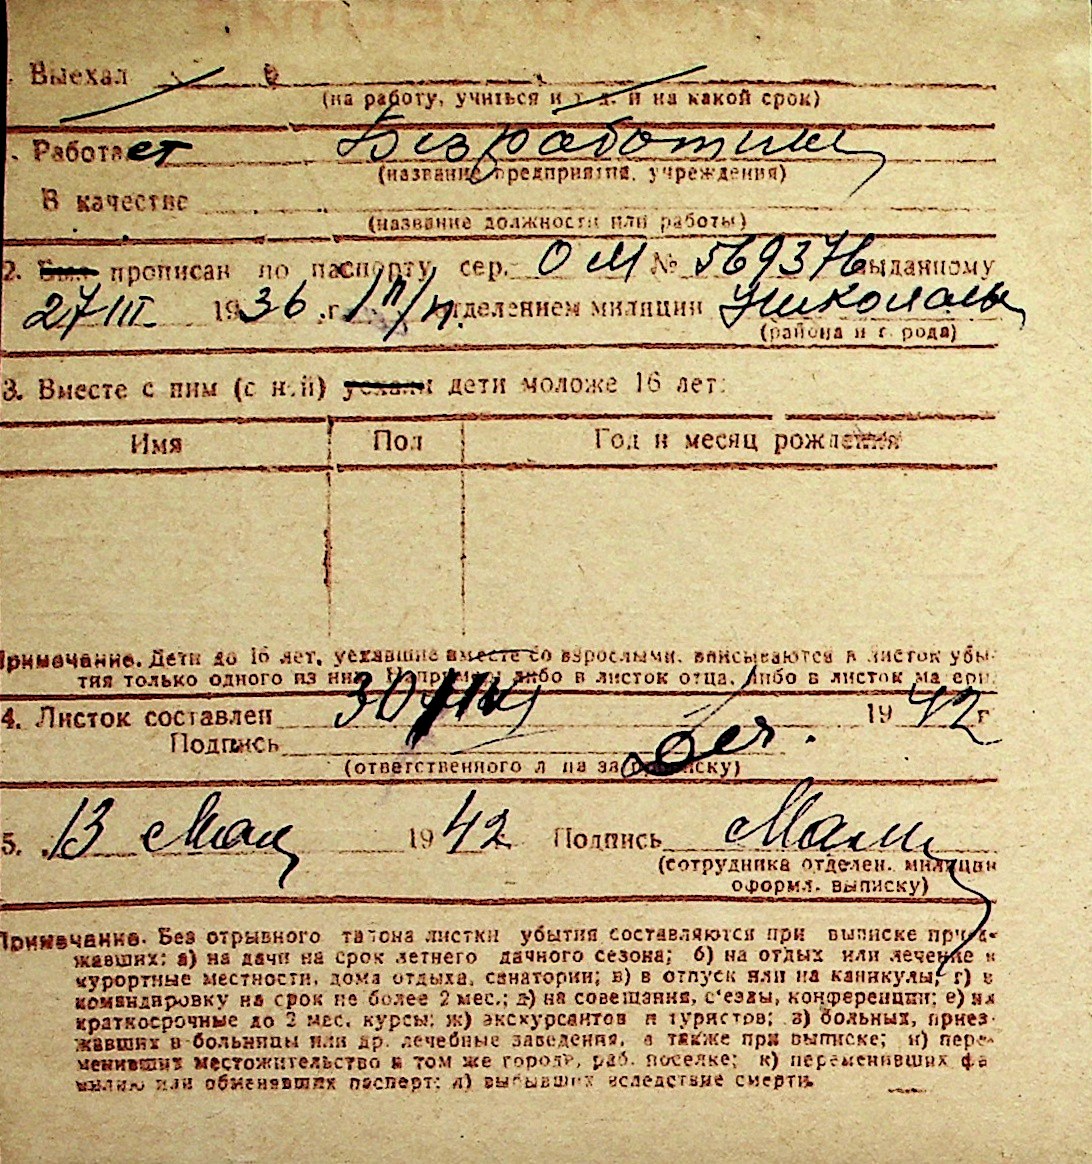 Выехал
(на работу, учиться и т. д. и на какой срок)
Работает Безработный
(название предприятия, учреждения)
В качестве
(название должности или работы)
2. Был прописан по паспорту сер. ОМ № 569376 выданному
27 III. 1936 .г. отделением милиции
(района и г. рода)
3. Вместе с ним (с н.й) уехали дети моложе 16 лет:
Имя Пол Год и месяц рождения
Примечание. Дети до 16 лет, уехавшие вместе со взрослыми, вписываются в листок убы-
тия только одного из них. Например либо в листок отца, либо в листок ма ери.
4. Листок составлен 30 1942 г
Подпись
(ответственного л ца за прописку)
5. 13 Мая 1942 Подпись
(сотрудника отделен. милиции
оформл. выписку)
Примечание. Без отрывного талона листки убытия составляются при выписке приез-
жавших: а) на дачи на срок летнего дачного сезона; б) на отдых или лечение и
курортные местности, дома отдыха, санатории; в) в отпуск или на каникулы; г) в
командировку на срок не более 2 мес.; д) на совещания, с'езды, конференции; е) на
краткосрочные до 2 мес. курсы; ж) экскурсантов и туристов; з) больных, приез-
жавших в больницы или др. лечебные заведения, а также при выписке; и) пере-
менивших местожительство в том же городе, раб. поселке; к) переменивших фа
милию или обменявших паспорт; л) выбывших вследствие смерти.